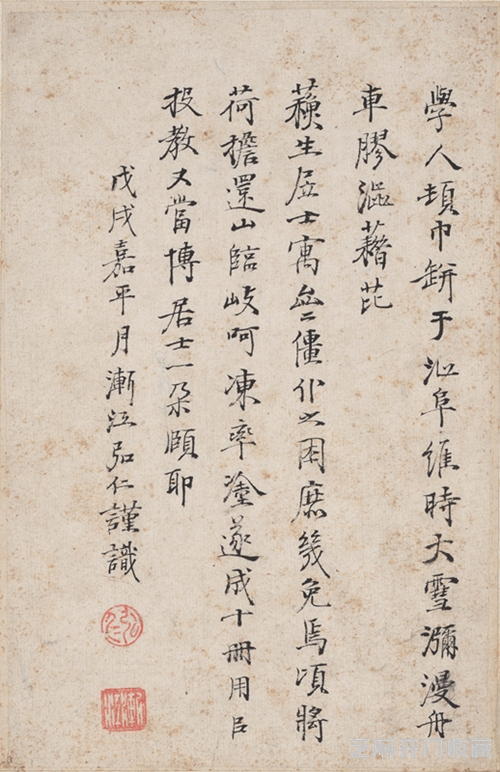 學人頓巾缾于沚阜維時大雪瀰漫舟
車膠澁藉芘
蘋生居士寓盦僵仆之困庶幾免焉頃將
荷擔還山臨岐呵凍率塗遂成十冊用㠯
投教又當博居士一朵頤耶
戊戌嘉平月漸江弘仁謹識
弘仁
漸江